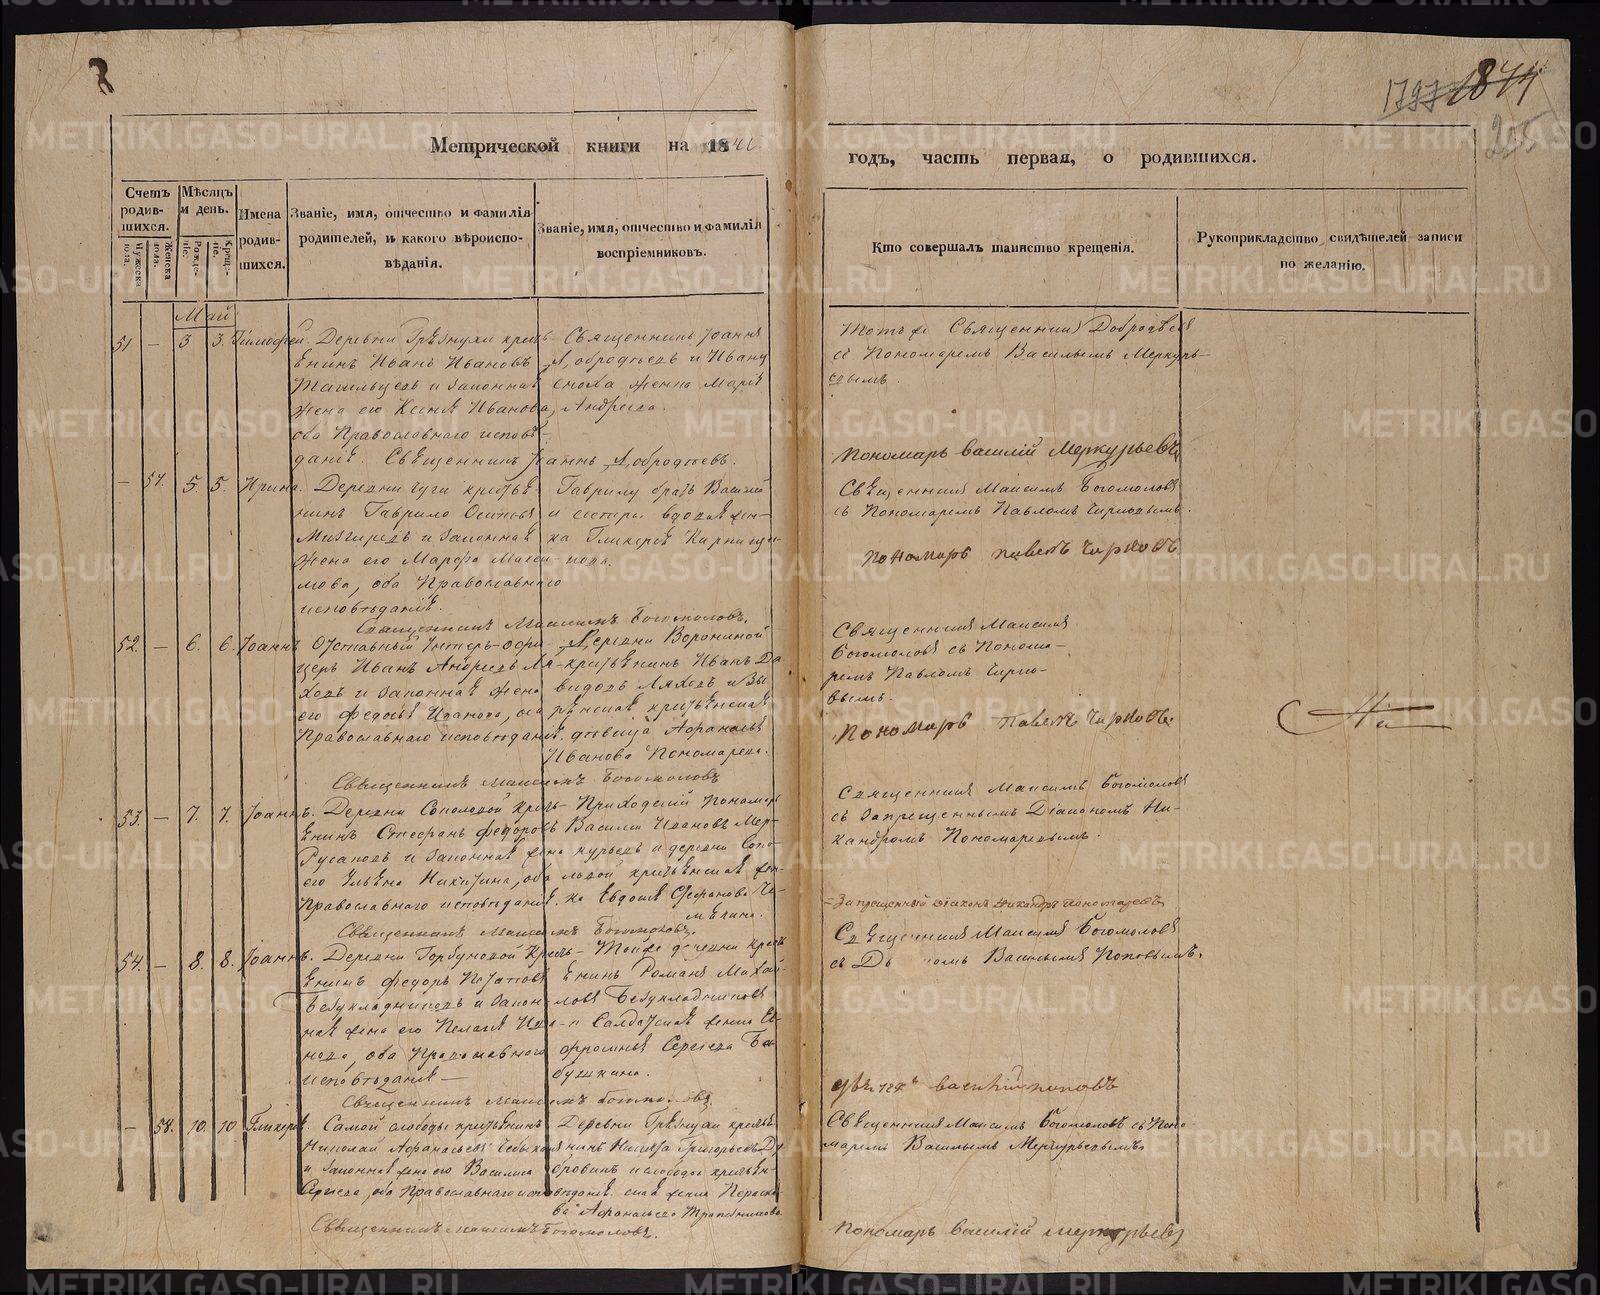 1797 1844
205
Метрической книги на 184
годъ, часть первая, о родившихся.
Счетъ родив-шихся.
Мужеска пола.
Женска пола.
Мѣсяцъ и день.
Рожде-ніе.
Креще-ніе.
Имена родив-шихся.
Званіе, имя, отчество и фамилія
родителей, и какого вѣроиспо-
вѣданія.
Званіе, имя, отчество и фамилія
воспріемниковъ.
Кто совершалъ таинство крещенія.
Рукоприкладство свидѣтелей записи
по желанію.
Май
51 — 3 3. Тимофей. Деревни Грѣзнухи кресть-
янинъ Иванъ Ивановъ
и законная
жена его Ксенія Иванова,
оба Православнаго исповѣ-
данія. Священникъ Іоаннъ Добродѣевъ.
Священникъ Іоаннъ
Добродѣевъ и Ивану
сноха жена Марія
Андреева.
Тотъ же Священникъ Добродѣевъ
съ Пономаремъ Васильемъ Меркурь-
евымъ.
Пономарь Василій Меркурьевъ
— 57. 5. 5. Ирина. Деревни кресть-
янинъ Гаврило Осиповъ
Мизгиревъ и законная
жена его Марфа Макси-
мова, оба Православнаго
исповѣданія.
Священникъ Максимъ Богомоловъ.
Гаврилу братъ Василій
и сестра вдовая жен-
ка Гликерія
Священникъ Максимъ Богомоловъ
съ Пономаремъ Павломъ Чирковымъ.
Пономарь Павелъ Чирковъ
52. — 6. 6. Іоаннъ Отставный Унтеръ-офи-
церъ Иванъ Андреевъ Ля-
ховъ и законная жена
его Федосья Иванова, оба
Православнаго исповѣданія.
Деревни Ворониной
крестьянинъ Иванъ Да-
видовъ Ляховъ и
крестьянская
дѣвица Афанасья
Иванова Пономарева.
Священникъ Максимъ Богомоловъ
Священникъ Максимъ
Богомоловъ съ Понома-
ремъ Павломъ Чирко-
вымъ.
Пономарь Павелъ Чирковъ.
53. — 7. 7. Іоаннъ. Деревни Соколовой кресть-
янинъ Стефанъ Федоровъ
Русаковъ и законная жена
его Ульяна Никитина, оба
Православнаго исповѣданія.
Приходскій Пономарь
Василій Ивановъ Мер-
курьевъ и деревни Соко-
ловой крестьянская жен-
ка Евдокія
Священникъ Максимъ Богомоловъ.
Священникъ Максимъ Богомоловъ
съ Запрещеннымъ Діакономъ Ни-
кандромъ Пономаревымъ.
Запрещенный Діаконъ Никандръ Пономаревъ
54. — 8. 8. Іоаннъ. Деревни Горбуновой Кресть-
янинъ Федоръ Игнатовъ
Безукладниковъ и закон-
ная жена его Пелагія Ива-
нова, оба Православнаго
исповѣданія —
Той же деревни кресть-
янинъ Романъ Михай-
ловъ Безукладниковъ
и Солдатская женка Ев-
фросинья Сергеева Ба-
бушкина.
Священникъ Максимъ Богомоловъ.
Священникъ Максимъ Богомоловъ
съ Васильемъ Поповымъ.
Василій Поповъ
— 58. 10. 10 Гликерія. Самой слободы крестьянинъ
Николай Афанасьевъ
и законная жена его Василиса
Сергеева, оба Православнаго исповѣданія.
Деревни Грѣзнухи кресть-
янинъ Никифоръ Григорьевъ Ду-
бровинъ и слободы крестьян-
ская женка Параске-
ва Афанасьева Трапезникова
Священникъ Максимъ Богомоловъ.
Священникъ Максимъ Богомоловъ съ Поно-
маремъ Васильемъ Меркурьевымъ
Пономарь Василій Меркурьевъ
METRIKI.GASO-URAL.RU